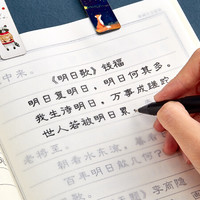 中来。
《明日歌》钱福
明日复明日，明日何其多。
我生待明日，万事成蹉跎
世人若被明日累，
老将至。
朝看水东流，暮看
百年明日能几何？
李商隐